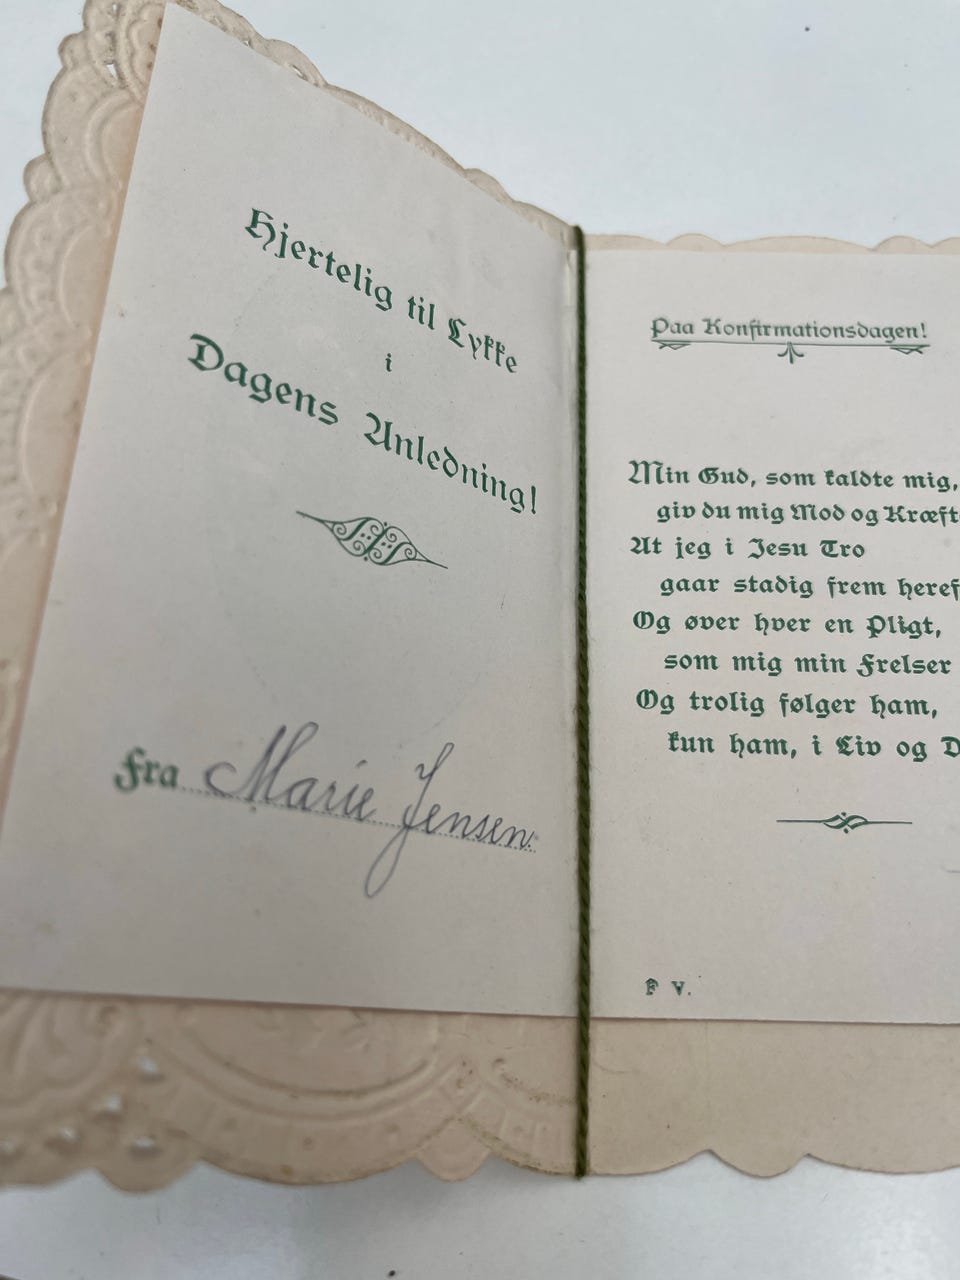 Hjertelig til Lykke
i
Dagens Anledning!
Fra Marie Jensen
Paa Konfirmationsdagen!
Min Gud, som kaldte mig,
giv du mig Mod og Kræft
At jeg i Jesu Tro
gaar stadig frem heref
Og øver hver en Pligt,
som mig min Frelser
Og trolig følger ham,
kun ham, i Liv og D
F V.